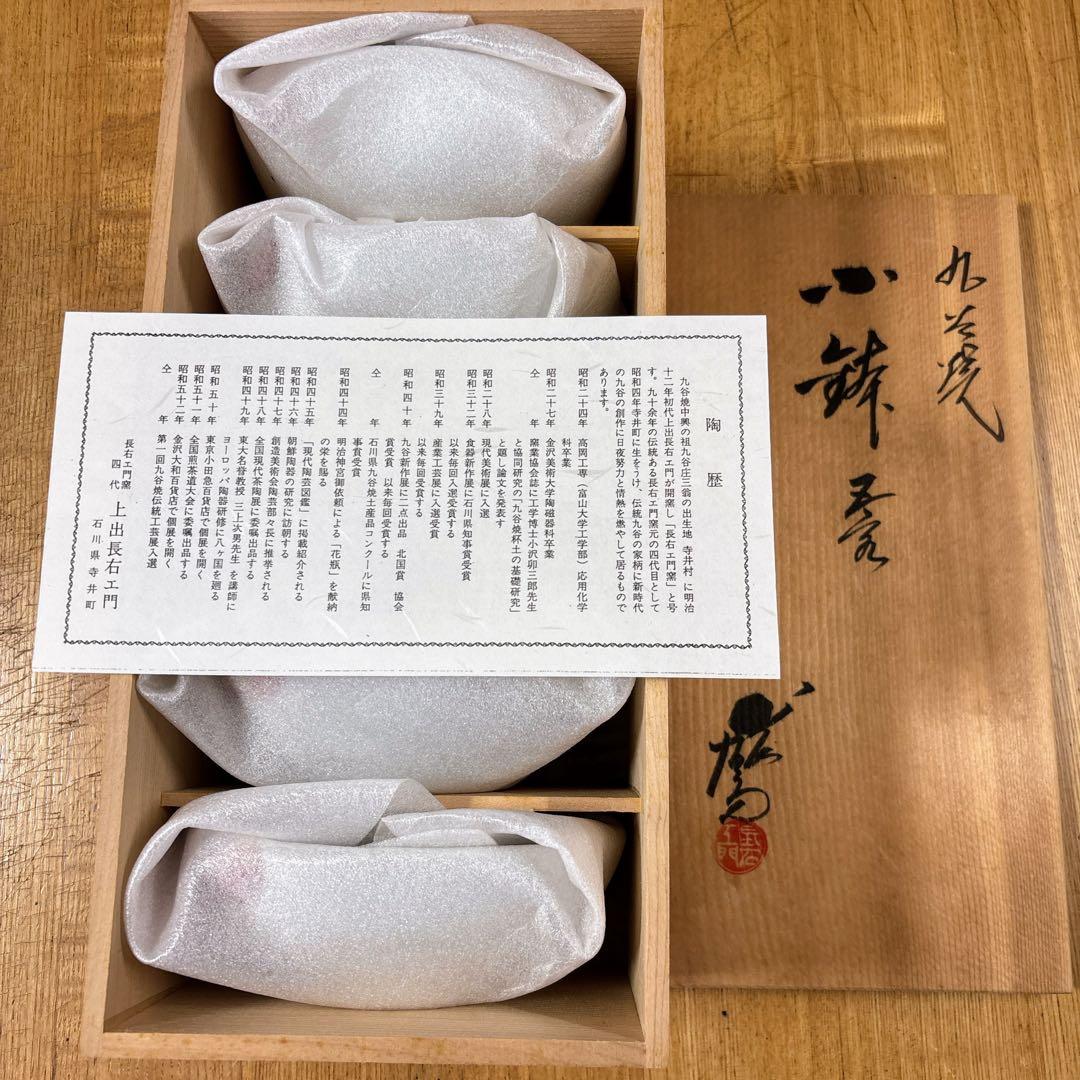 陶歴
九谷焼中興の祖九谷庄三翁の出生地 寺井村 に明治
十二年初代上出長右ェ門が開窯し「長右ェ門窯」と号
す。九十余年の伝統ある長右ェ門窯元の四代目として
昭和四年寺井町に生をうけ、伝統九谷の家柄に新時代
の九谷の創作に日夜努力と情熱を燃やして居るもので
あります。
昭和二十四年 高岡工専(富山大学工学部)応用化学
科卒業
昭和二十七年 金沢美術大学陶磁器科卒業
仝 年 窯業協会誌に工学博士小沢卯三郎先生
と協同研究の「九谷焼杯土の基礎研究」
と題し論文を発表す
昭和二十八年 現代美術展に入選
昭和三十二年 食器新作展に石川県知事賞受賞
以来毎回入選受賞する
昭和三十九年 産業工芸展に入選受賞
以来毎回受賞する
昭和四十年 九谷新作展に二点出品 北国賞 協会
賞受賞 以来毎回受賞する
仝 年 石川県九谷焼土産品コンクールに県知
事賞受賞
昭和四十四年 明治神宮御依頼による「花瓶」を献納
の栄を賜る
昭和四十五年 「現代陶芸図鑑」に掲載紹介される
昭和四十六年 朝鮮陶器の研究に訪朝する
昭和四十七年 創造美術会陶芸部々長に推挙される
昭和四十八年 全国現代茶陶展に委嘱出品する
昭和四十九年 東大名誉教授 三上次男先生 を講師に
ヨーロッパ陶器研修に八ヶ国を廻る
昭和五十年 東京小田急百貨店で個展を開く
昭和五十一年 全国煎茶道大会に委嘱出品する
昭和五十二年 金沢大和百貨店で個展を開く
仝 年 第一回九谷焼伝統工芸展入選
長右ェ門窯
四代 上出長右ェ門
石川県寺井町
九谷焼
小鉢 五客